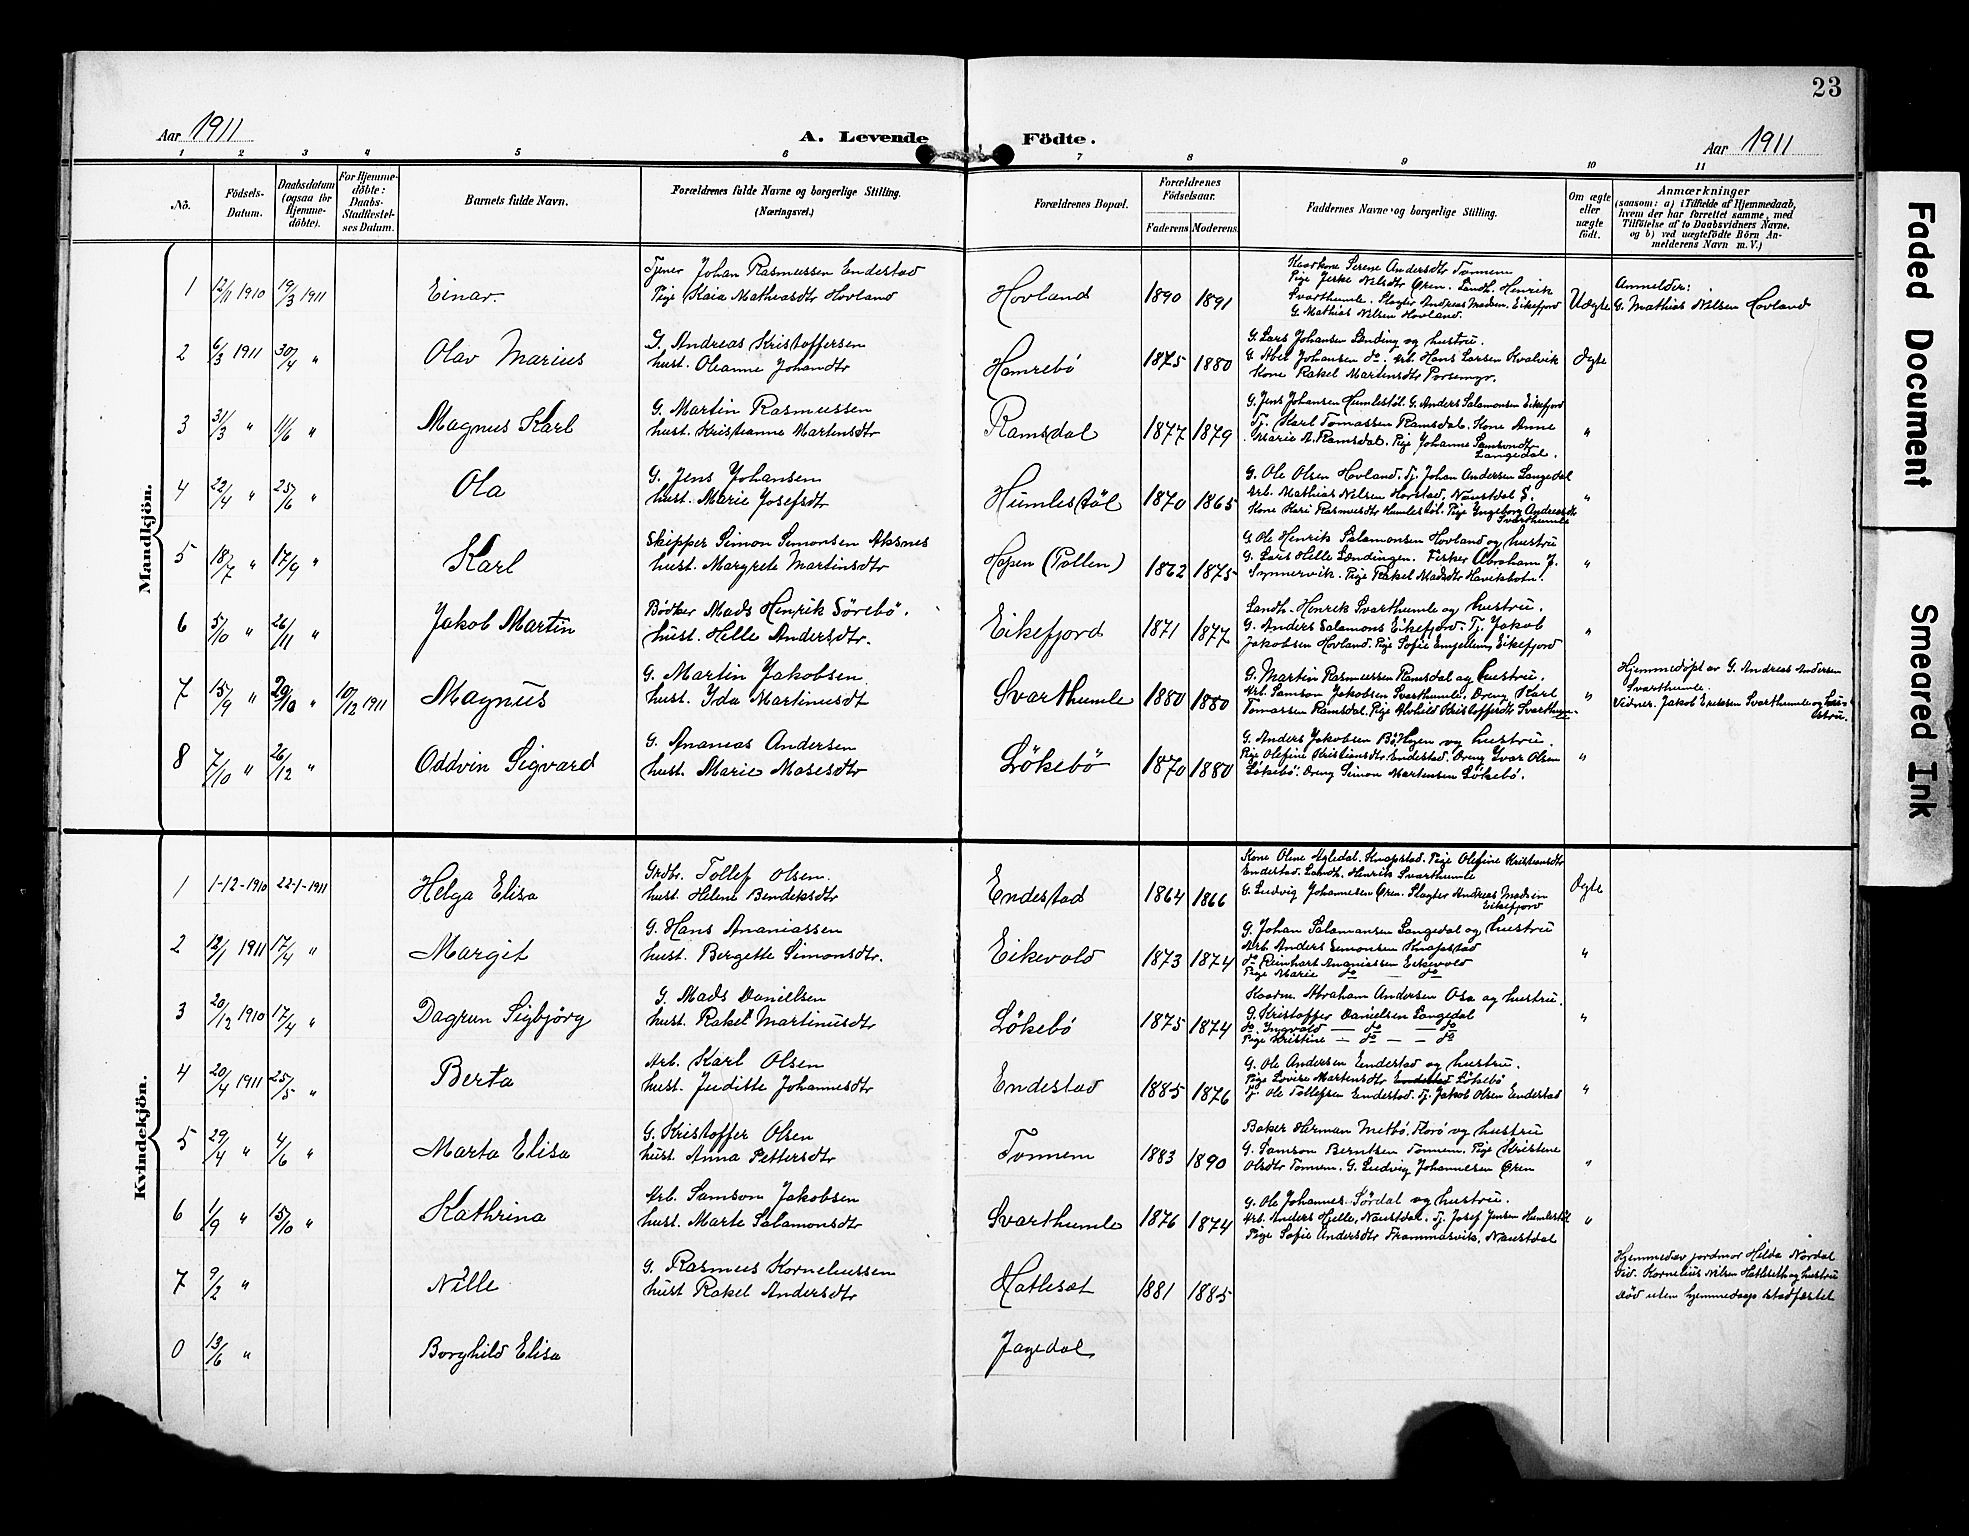 23
Aar 1911
A. Levende Födte.
Aar 1911
1 2 3 4 5 6 7 8 9 10 11
No.
Födsels-Datum.
Daabsdatum (ogsaa for Hjemmedöbte).
For Hjemmedöbte: Daabs-Stadfæstelses Datum.
Barnets fulde Navn.
Forældrenes fulde Navne og borgerlige Stilling.
(Næringsvei.)
Forældrenes Bopæl.
Forældrenes Födselsaar.
Faderens Moderens
Faddernes Navne og borgerlige Stilling.
Om ægte eller uægte födt.
Anmærkninger
(saasom: a) i Tilfælde af Hjemmedaab,
hvem der har forrettet samme, med
Tilföielse af to Daabsvidners Navne,
og b) ved uægtefödte Börn An-
melderens Navn m. V.)
Mandkjön.
1 12/11 1910 19/3 1911 Einar.
Tjener Johan Rasmussen Endestad
Pige Kaia Mathiasdtr Hovland
Hovland 1890 1891
Pige Jerke Nilsdtr Øren. Landh. Henrik
Svarthumle. Slagter Andreas Madsen Eikefjord
G. Mathias Nilsen Hovland.
Uægte
Anmelder:
G. Mathias Nilsen Hovland
2 6/3 1911 30/4 " Olav Marius
G. Andreas Kristoffersen
hust. Oleanne Johandtr
Hamrebö 1875 1880
G. Lars Johansen Lending og hustru.
G. Abel Johansen do. Arb. Hans Larsen Kvalvik
Kone Rakel Martensdtr Porsemyr.
Ægte
3 31/3 " 11/6 " Magnus Karl
G. Martin Rasmussen
hust. Kristianne Martensdtr
Ramsdal 1877 1879
G. Jens Johansen Humlestöl. G. Anders Salamonsen Eikefjord
Tj. Karl Tomassen Ramsdal. Kone Anne
Marie A. Ramsdal. Pige Johanne Samsondtr
Langedal.
"
4 22/4 " 25/6 " Ola
G. Jens Johansen
hust. Marie Josefsdtr
Humlestöl 1870 1865
G. Ole Olsen Hovland. Tj. Johan Andersen Langedal
Arb. Mathias Nilsen Horstad, Naustdal S.
Kone Kari Rasmusdtr Humlestöl. Pige Ingeborg Andreasdtr
Svarthumle
"
5 18/7 " 17/9 " Karl
Skipper Simon Simonsen Aksnes
hust. Margrete Martinsdtr
Hopen (Pollen) 1862 1875
G. Ole Henrik Salamonsen Hovland og hustru
G. Lars Helle Lendingen. Fisker Abraham J.
Synnervik. Pige Rakel Madsdtr Haviksbotn.
"
6 5/10 " 26/11 " Jakob Martin
Bödker Mads Henrik Sörebö.
hust. Helle Andersdtr.
Eikefjord 1871 1877
Landh. Henrik Svarthumle og hustru.
G. Anders Salamons Eikefjord. Tj. Jakob
Jakobsen Hovland. Pige Sofie Engellens Eikefjord
"
7 15/9 " 29/10 " 10/12 1911 Magnus
G. Martin Jakobsen
hust. Yda Martinusdt
Svarthumle 1880 1880
G. Martin Rasmussen Ramsdal og hustru.
Arb. Samson Jakobsen Svarthumle. Dreng Karl
Tomassen Ramsdal. Pige Alvhild Kristofferdtr Svarthumle
"
Hjemmedöpt av G. Andreas Andersen
Svarthumle.
Vidner. Jakob Eriksen Svarthumle og
8 7/10 " 26/12 " Oddvin Sigvard
G. Ananias Andersen
hust. Marie Mosesdtr
Lökebö 1870 1880
G. Anders Jakobsen Böthgen og hustru.
Pige Olefine Kristiansdtr Endestad. Dreng Ivar Olsen
Lökebö. Dreng Simon Martensen Lökebö.
"
Kvindekjön.
1 1-12-1910 22-1-1911 Helga Elisa
Grdbr. Tollef Olsen.
hust. Helene Bendeksdtr
Endestad 1864 1866
Kone Oline Myledal. Knapstad. Pige Olefine Kristiansdtr
Endestad. Landh. Henrik Svarthumle
G. Ludvig Johannesen Øren. Slagter Andreas Madsen
Eikefjord
Ægte
2 12/1 1911 17/4 " Margit
G. Hans Ananiassen
hust. Bergette Simonsdtr.
Eikevold 1873 1874
G. Johan Salamansen Langedal og hustru
Arb. Anders Simonsen Knapstad
do Reinhart Ananiassen Eikevold
Pige Marie do — do
"
3 20/12 1910 17/4 " Dagrun Sigbjörg
G. Mads Danielsen
hust. Rakel Martinusdtr
Lökebö 1875 1874
Kaarm. Abraham Andersen Osa og hustru.
G. Kristoffer Danielsen Langedal
do. Ingvald — do — do
Pige Kristine — do — — do
"
4 20/4 1911 25/5 " Berta
Arb. Karl Olsen
hust. Juditte Johannesdtr
Endestad 1885 1876
G. Ole Andersen Endestad og hustru.
Pige Lovise Martensdtr Endestad Lökebö
Tj. Ole Tollefsen Endestad. Tj. Jakob Olsen Endestad
"
5 29/4 " 4/6 " Marta Elisa
G. Kristoffer Olsen
hust. Anna Pettersdtr
Tonnem 1883 1890
Baker Herman Metbö, Florö og hustru
G. Samson Berntsen Tonnem. Pige Kristene
Olsdtr Tonnem. G. Ludvig Johannesen Øren
"
6 1/9 " 15/10 " Kathrina
Arb. Samson Jakobsen
hust. Marte Salamonsdtr
Svarthumle 1876 1874
G. Ole Johannes. Sördal og hustru.
Arb. Anders Hjelle, Naustdal. Tj. Josef Jensen Humlestöl
Pige Sofie Andersdtr Frammarsvik, Naustdal
"
7 9/2 " Nille
G. Rasmus Korneliussen
hust Rakel Andersdtr
Hatleset 1881 1885
Hjemmed. av jordmor Hilda Nordal
Vid. Kornelius Nilsen Hatleseth og hustru
Död uten hjemmedaaps stadfæstet
0 13/6 " Borghild Elisa
Jagedal
Faded Document
Smeared Ink